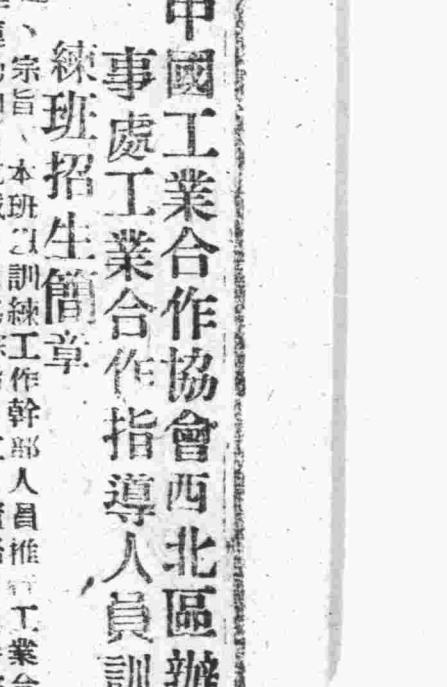 中國工業合作協會西北區辦
事處工業合作指導人員訓
練班招生簡章
、宗旨、本班以訓練工作幹部人員推行工業合